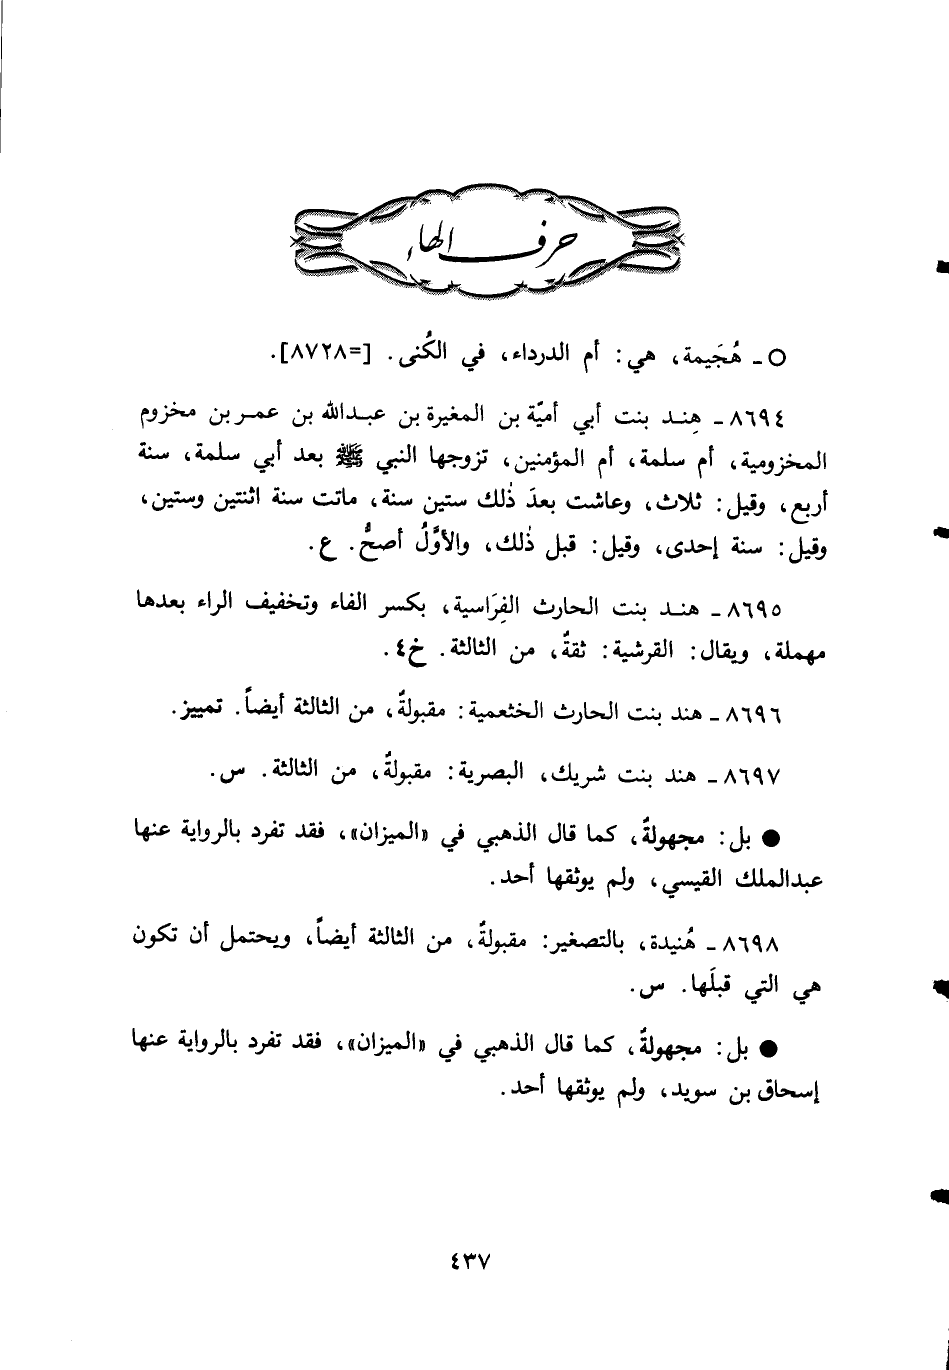 حرف الهاء
○ ـ هُجَيمة، هي: أم الدرداء، في الكُنى. [=٨٧٢٨].
٨٦٩٤ ـ هِنـد بنت أبي أميّة بن المغيرة بن عبـدالله بن عمـر بن مخزوم
المخزومية، أم سلمة، أم المؤمنين، تزوجها النبي ﷺ بعد أبي سلمة، سنة
أربع، وقيل: ثلاث، وعاشت بعدَ ذٰلك ستين سنة، ماتت سنة اثنتين وستين،
وقيل: سنة إحدى، وقيل: قبل ذٰلك، والأوَّلُ أصحُّ. ع.
٨٦٩٥ ـ هنـد بنت الحارث الفِرَاسية، بكسر الفاء وتخفيف الراء بعدها
مهملة، ويقال: القرشية: ثقةٌ، من الثالثة. خ٤.
٨٦٩٦ ـ هند بنت الحارث الخثعمية: مقبولةٌ، من الثالثة أيضاً. تمييز.
٨٦٩٧ ـ هند بنت شريك، البصرية: مقبولةٌ، من الثالثة. س.
● بل: مجهولةٌ، كما قال الذهبي في «الميزان»، فقد تفرد بالرواية عنها
عبدالملك القيسي، ولم يوثقها أحد.
٨٦٩٨ ـ هُنيدة، بالتصغير: مقبولةٌ، من الثالثة أيضاً، ويحتمل أن تكون
هي التي قبلَها. س.
● بل: مجهولةٌ، كما قال الذهبي في «الميزان»، فقد تفرد بالرواية عنها
إسحاق بن سويد، ولم يوثقها أحد.
٤٣٧